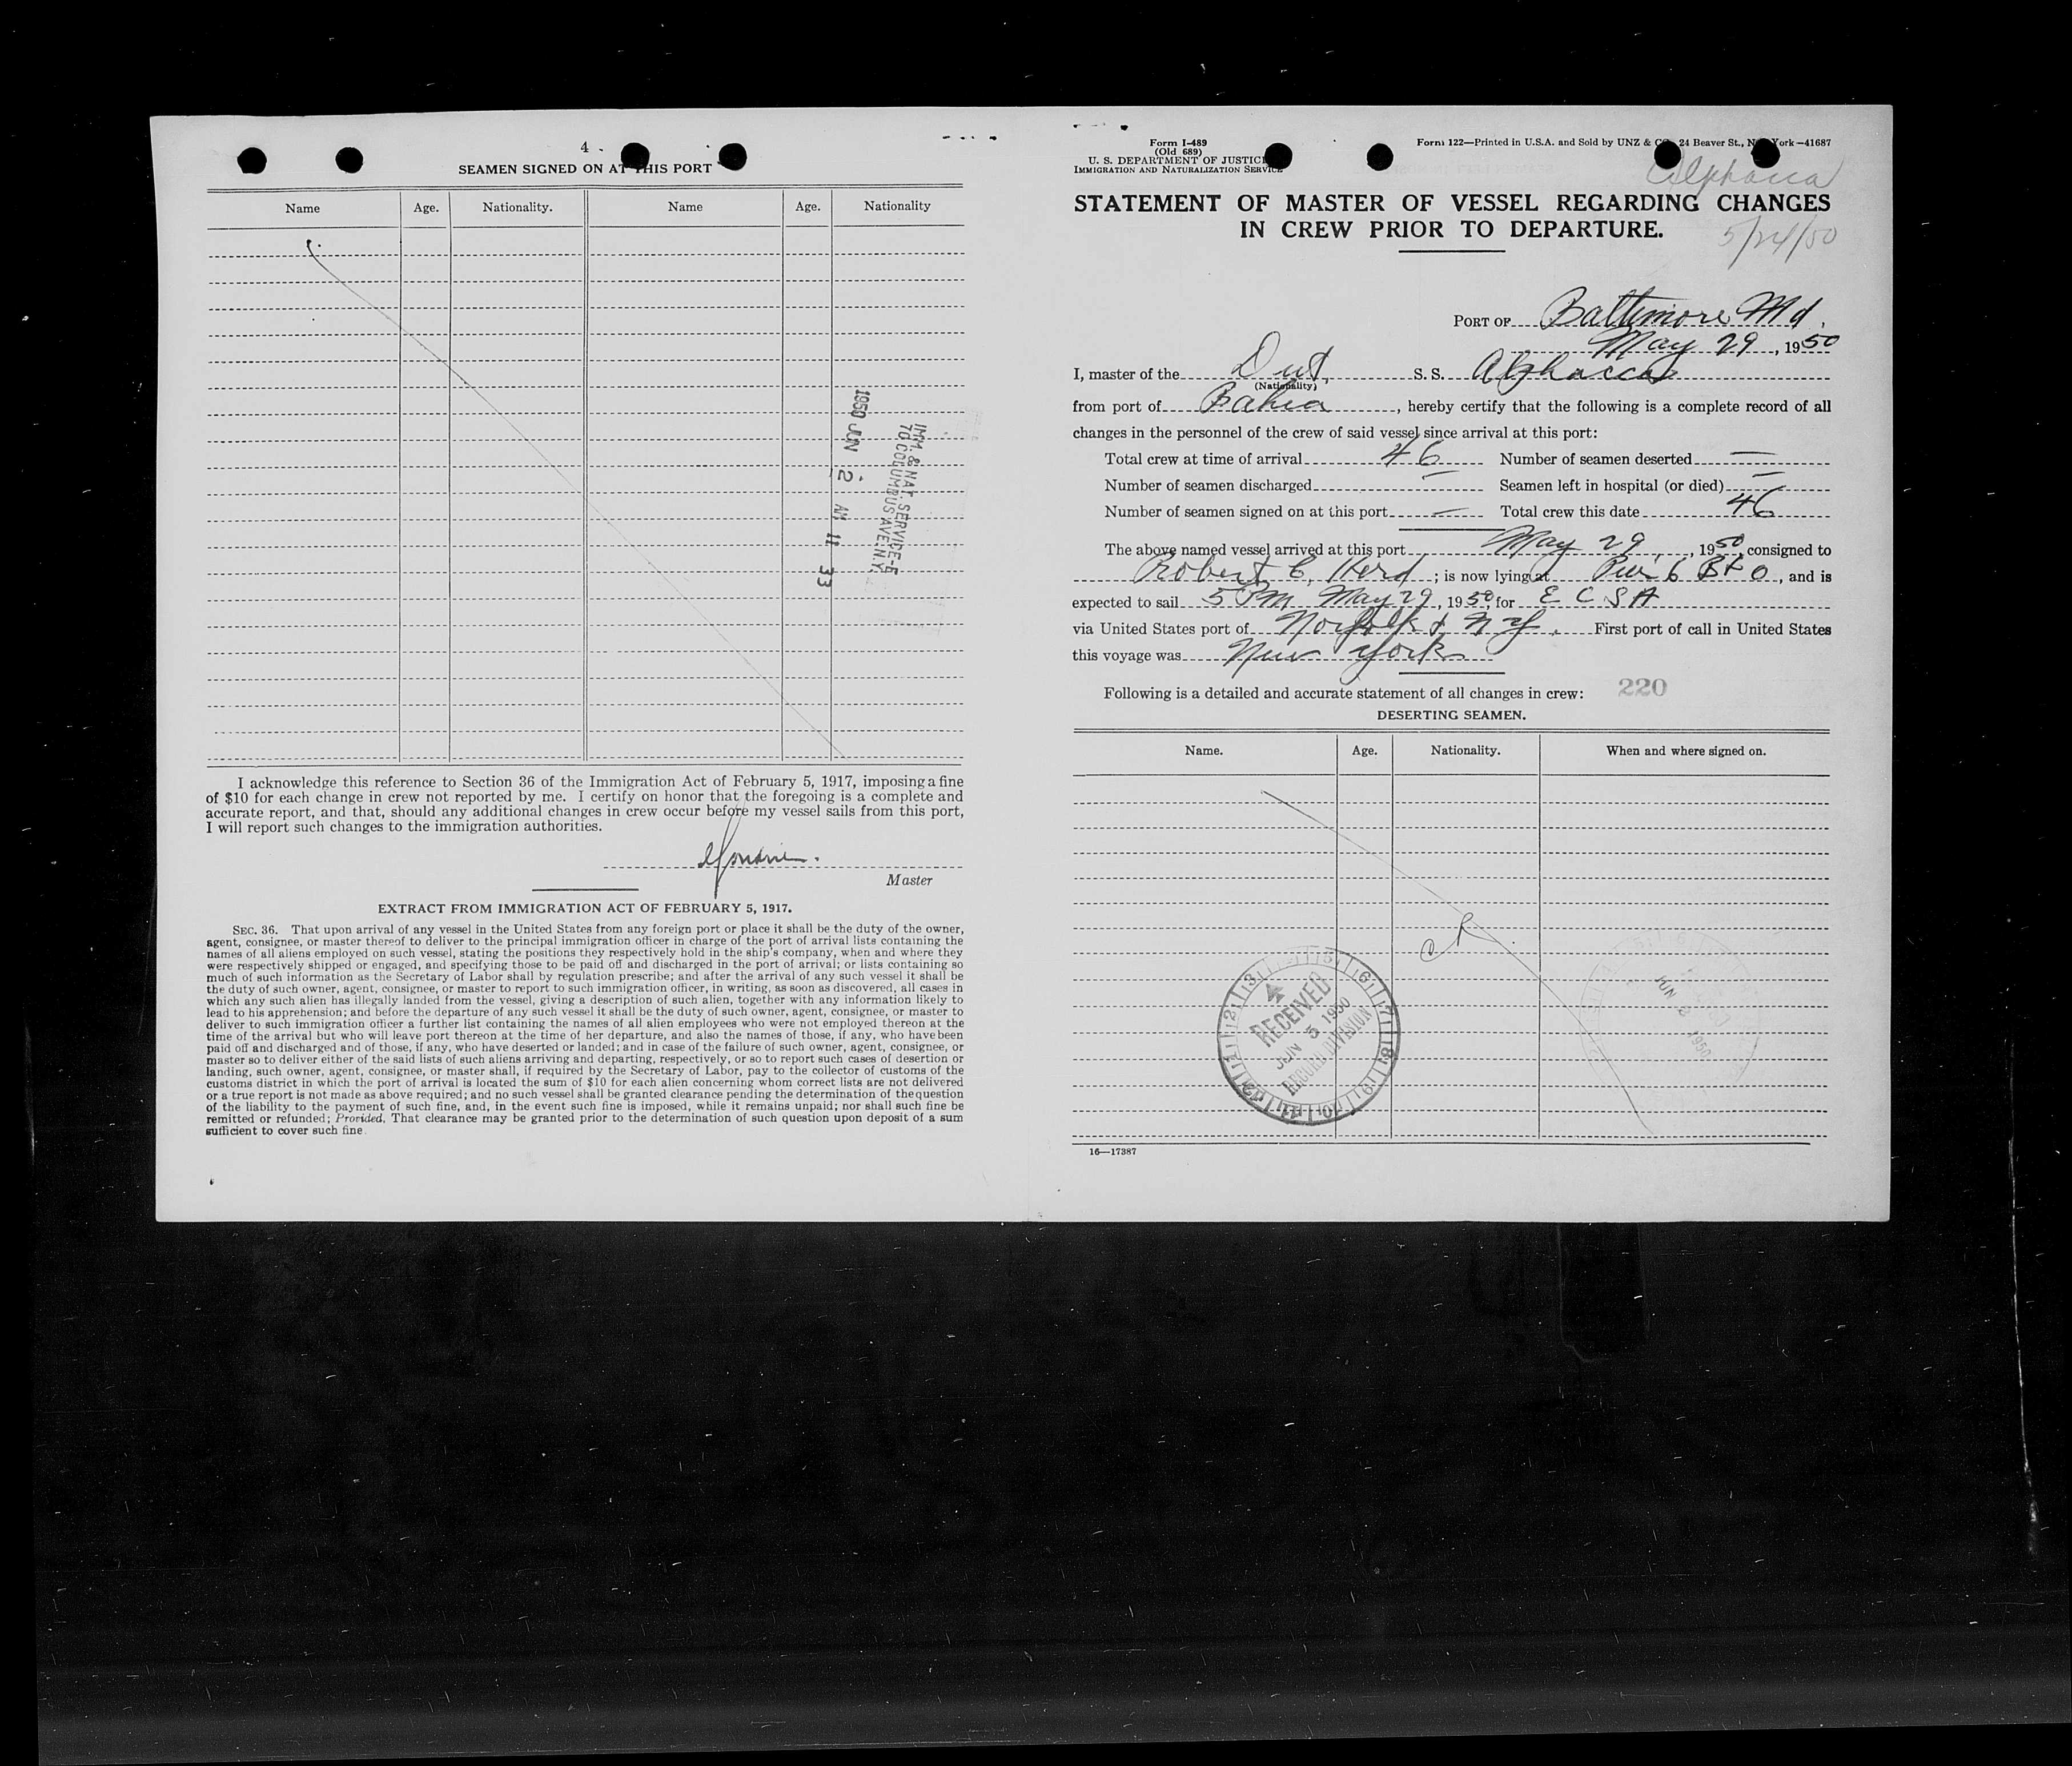 4
SEAMEN SIGNED ON AT THIS PORT
Name Age. Nationality. Name Age. Nationality
IMM. & NAT. SERVICE-5
70 COLUMBUS AVE. N.Y.
1950 JUN 2 AM 11 33
I acknowledge this reference to Section 36 of the Immigration Act of February 5, 1917, imposing a fine
of $10 for each change in crew not reported by me. I certify on honor that the foregoing is a complete and
accurate report, and that, should any additional changes in crew occur before my vessel sails from this port,
I will report such changes to the immigration authorities.
Master
EXTRACT FROM IMMIGRATION ACT OF FEBRUARY 5, 1917.
SEC. 36. That upon arrival of any vessel in the United States from any foreign port or place it shall be the duty of the owner,
agent, consignee, or master thereof to deliver to the principal immigration officer in charge of the port of arrival lists containing the
names of all aliens employed on such vessel, stating the positions they respectively hold in the ship's company, when and where they
were respectively shipped or engaged, and specifying those to be paid off and discharged in the port of arrival; or lists containing so
much of such information as the Secretary of Labor shall by regulation prescribe; and after the arrival of any such vessel it shall be
the duty of such owner, agent, consignee, or master to report to such immigration officer, in writing, as soon as discovered, all cases in
which any such alien has illegally landed from the vessel, giving a description of such alien, together with any information likely to
lead to his apprehension; and before the departure of any such vessel it shall be the duty of such owner, agent, consignee, or master to
deliver to such immigration officer a further list containing the names of all alien employees who were not employed thereon at the
time of the arrival but who will leave port thereon at the time of her departure, and also the names of those, if any, who have been
paid off and discharged and of those, if any, who have deserted or landed; and in case of the failure of such owner, agent, consignee, or
master so to deliver either of the said lists of such aliens arriving and departing, respectively, or so to report such cases of desertion or
landing, such owner, agent, consignee, or master shall, if required by the Secretary of Labor, pay to the collector of customs of the
customs district in which the port of arrival is located the sum of $10 for each alien concerning whom correct lists are not delivered
or a true report is not made as above required; and no such vessel shall be granted clearance pending the determination of the question
of the liability to the payment of such fine, and, in the event such fine is imposed, while it remains unpaid; nor shall such fine be
remitted or refunded; Provided, That clearance may be granted prior to the determination of such question upon deposit of a sum
sufficient to cover such fine.
Form I-489
(Old 689)
U. S. DEPARTMENT OF JUSTICE
IMMIGRATION AND NATURALIZATION SERVICE
Form 122—Printed in U.S.A. and Sold by UNZ & CO., 24 Beaver St., New York—41687
Alphacca
STATEMENT OF MASTER OF VESSEL REGARDING CHANGES
IN CREW PRIOR TO DEPARTURE.
5/24/50
PORT OF Baltimore, Md.
May 29, 1950
I, master of the Dut. S. S. Alphacca
(Nationality)
from port of Bahia, hereby certify that the following is a complete record of all
changes in the personnel of the crew of said vessel since arrival at this port:
Total crew at time of arrival 46 Number of seamen deserted —
Number of seamen discharged — Seamen left in hospital (or died) —
Number of seamen signed on at this port — Total crew this date 46
The above named vessel arrived at this port May 29, 1950, consigned to
Robert C. Herd; is now lying at Pier 6 B & O, and is
expected to sail 5 PM May 29, 1950, for E C S A
via United States port of Norfolk & N Y. First port of call in United States
this voyage was New York
Following is a detailed and accurate statement of all changes in crew: 220
DESERTING SEAMEN.
Name. Age. Nationality. When and where signed on.
RECEIVED
JUN 3 1950
RECORD DIVISION
JUN 2 1950
16—17387